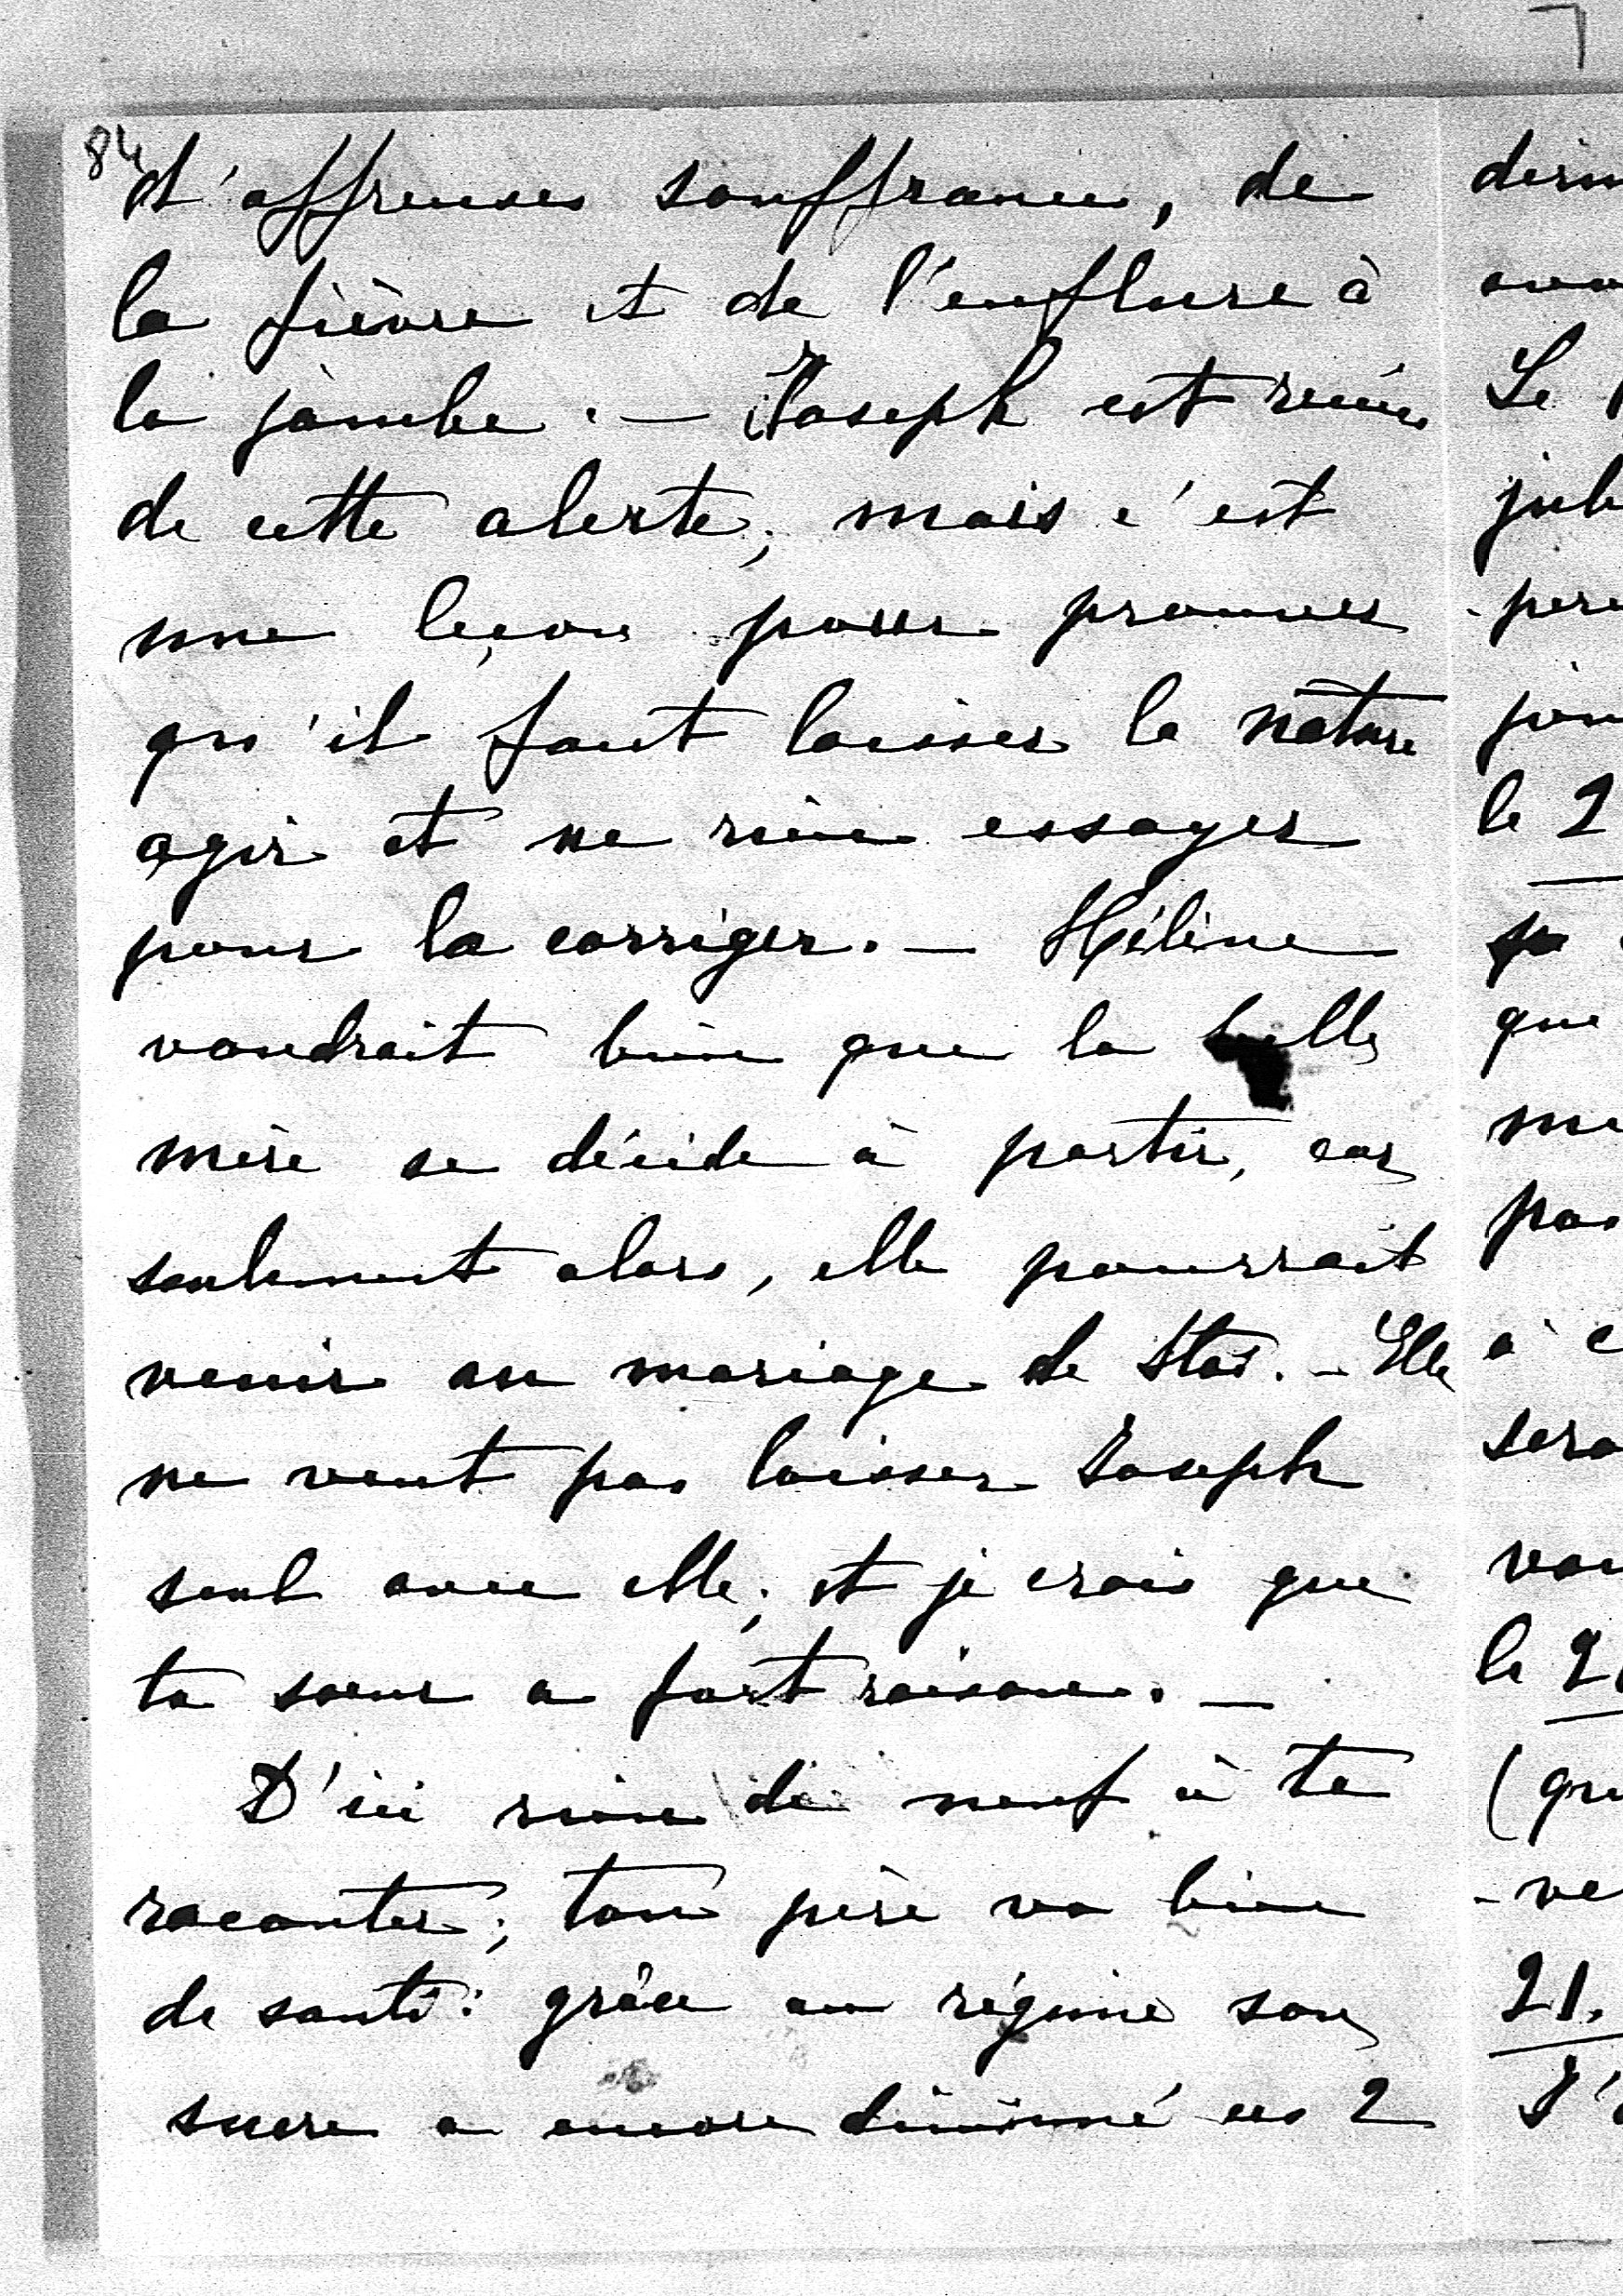 84
d'affreuses souffrances, de
la fièvre et de l'enflure à
la jambe. — Joseph est remis
de cette alerte, mais c'est
une leçon pour prouver
qu'il faut laisser la nature
agir et ne rien essayer
pour la corriger. — Hélène
voudrait bien que la belle
mère se décide à partir, car
seulement alors, elle pourrait
venir au mariage de Stas. — Elle
ne veut pas laisser Joseph
seul avec elle; et je crois que
ta soeur a fort raison. —
D'ici rien de neuf à te
raconter; ton père va bien
de santé: grâce au régime son
sucre a encore diminué ces 2
le 2
que
pas
à
le 2
21.